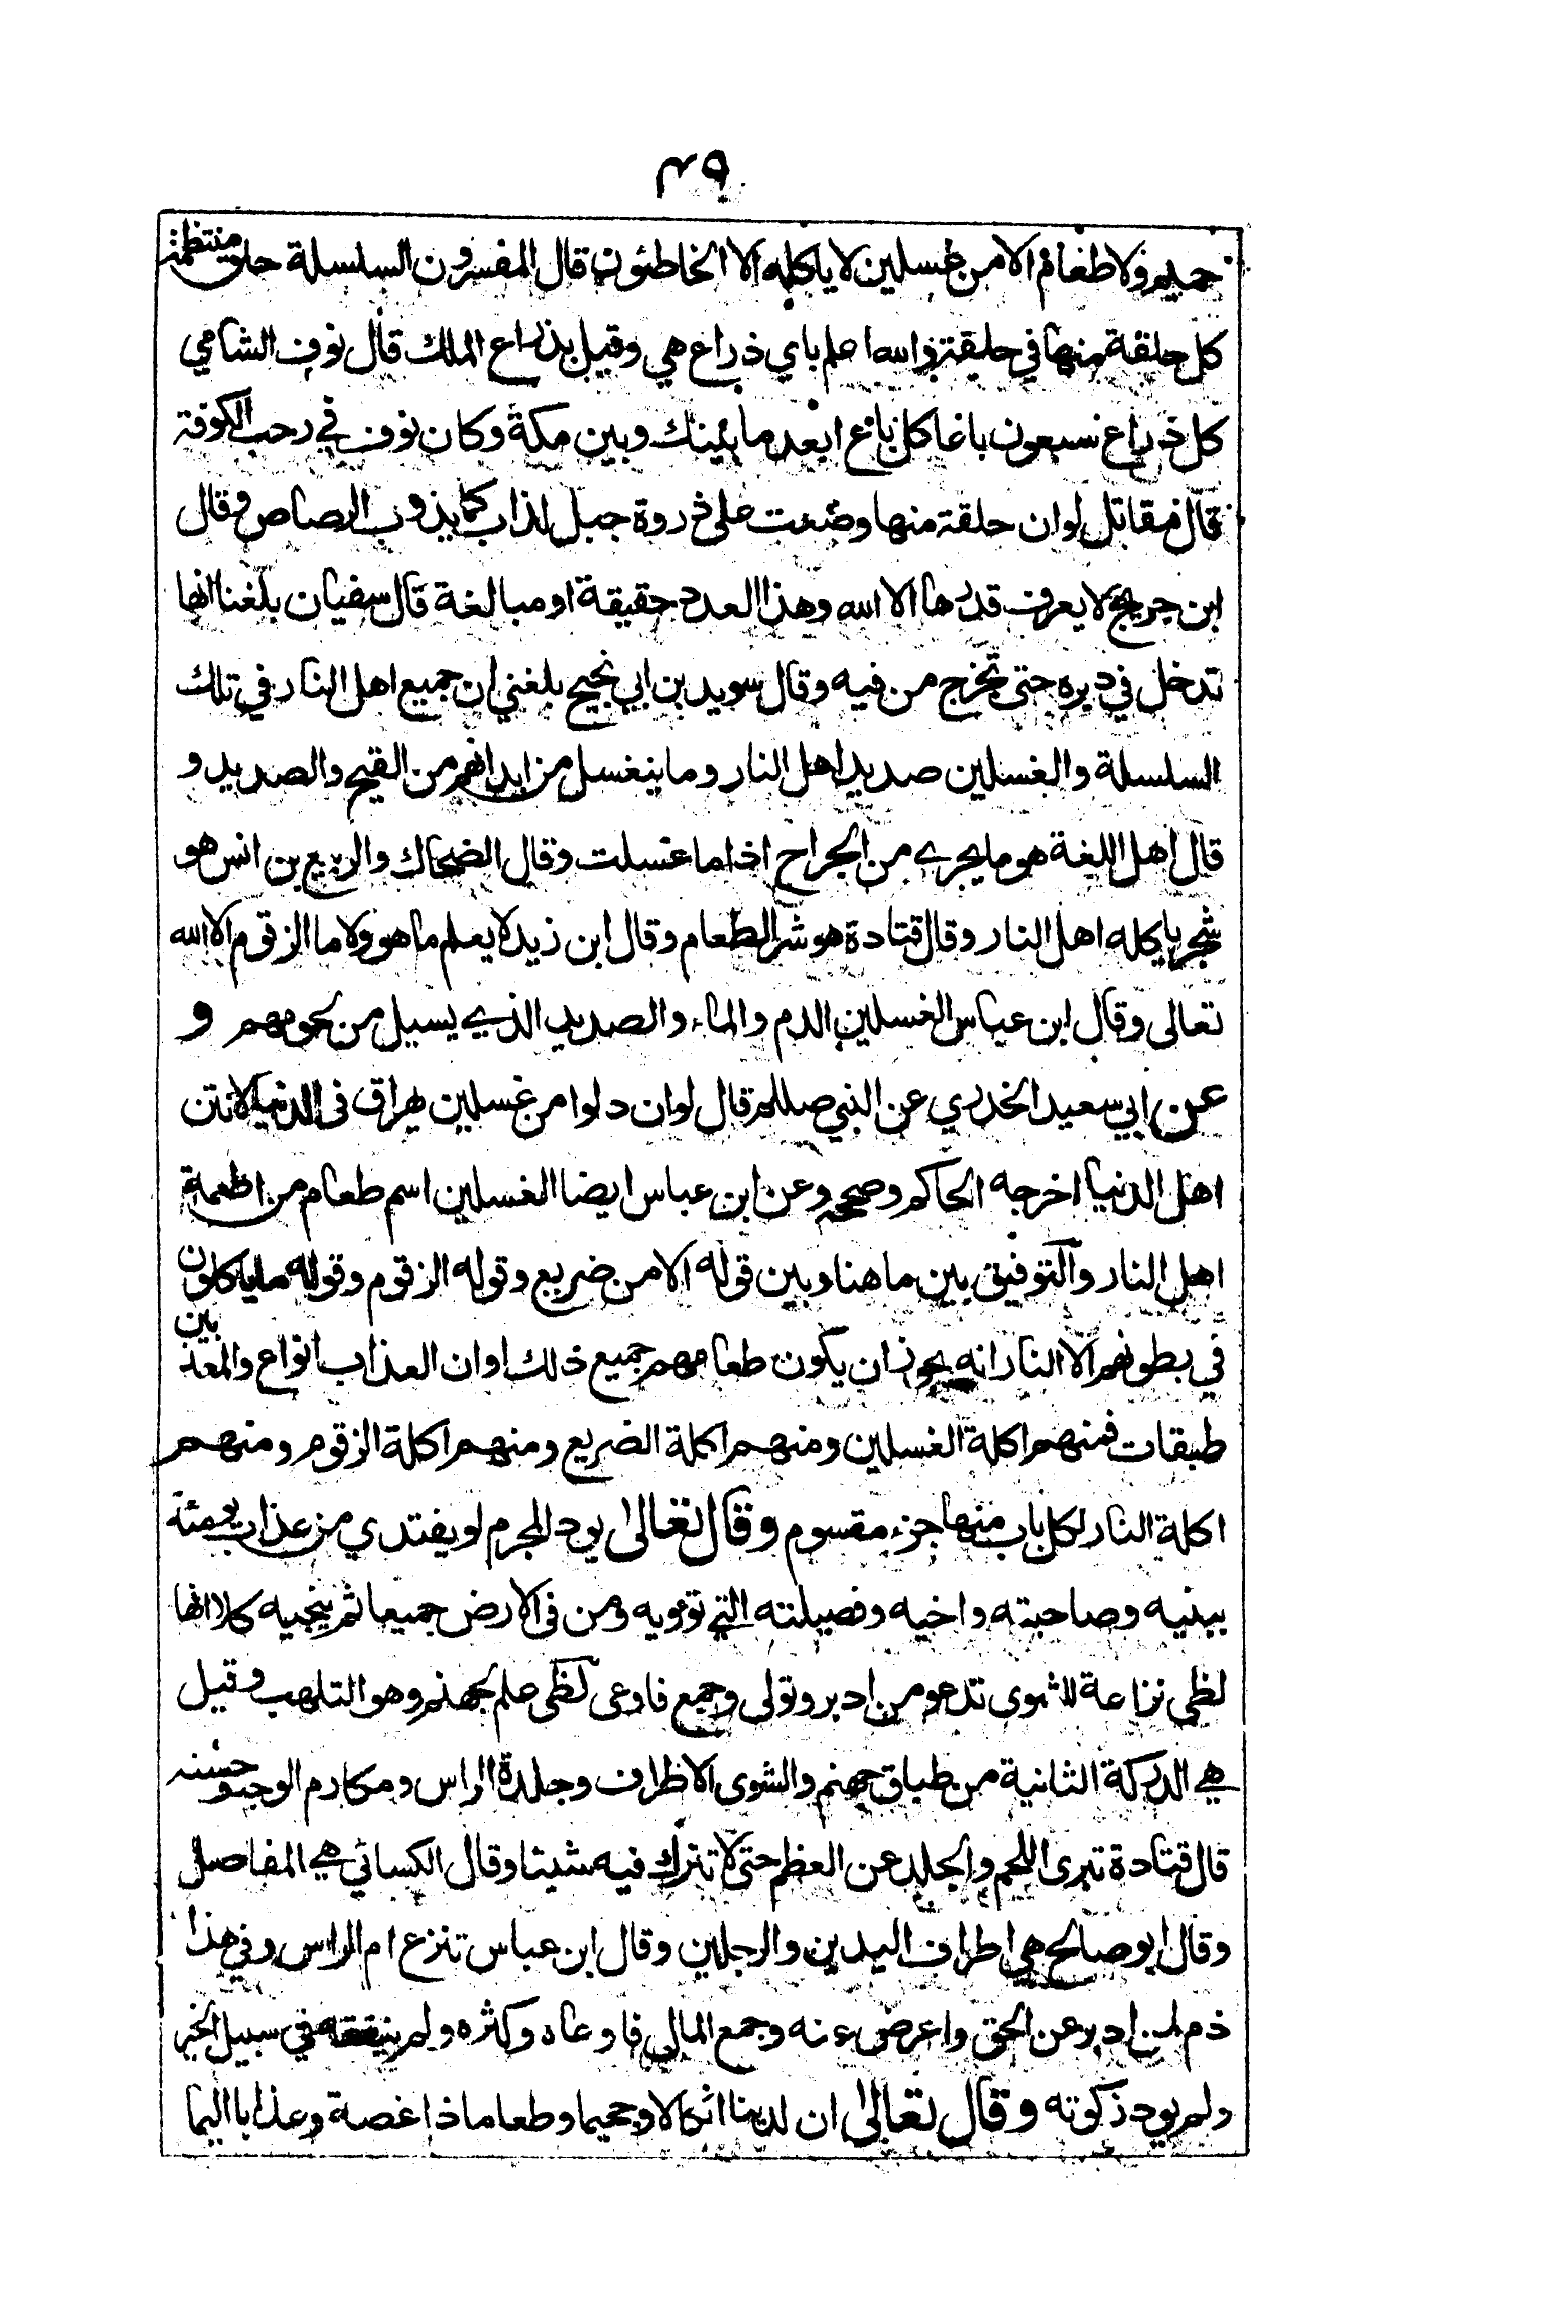 ٣٩
حميم ولا طعام الا من غسلين لا ياكله الا الخاطئون قال المفسرون السلسلة حلق منتظمة
كل حلقة منها في حلقة والله اعلم باي ذراع هي وقيل بذراع الملك قال نوف الشامي
كل ذراع سبعون باعا كل باع ابعد ما بينك وبين مكة وكان نوف في رحب الكوفة
قال مقاتل لو ان حلقة منها وضعت على ذروة جبل لذاب كما يذوب الرصاص وقال
ابن جريج لا يعرف قدرها الا الله وهذا العدد حقيقة او مبالغة قال سفيان بلغنا انها
تدخل في دبره حتى تخرج من فيه وقال سويد بن ابي نجيح بلغني ان جميع اهل النار في تلك
السلسلة والغسلين صديد اهل النار وما ينغسل من ابدانهم من القيح والصديد و
قال اهل اللغة هو ما يجري من الجراح اذا ما غسلت وقال الضحاك والربيع بن انس هو
شجر ياكله اهل النار وقال قتادة هو شر الطعام وقال ابن زيد لا يعلم ما هو ولا ما الزقوم الا الله
تعالى وقال ابن عباس الغسلين الدم والماء والصديد الذي يسيل من لحومهم و
عن ابي سعيد الخدري عن النبي صللم قال لو ان دلوا من غسلين يهراق فى الدنيا لانتن
اهل الدنيا اخرجه الحاكم وصححه وعن ابن عباس ايضا الغسلين اسم طعام من اطعمة
اهل النار والتوفيق بين ما هنا وبين قوله الا من ضريع وقوله الزقوم وقوله ما ياكلون
في بطونهم الا النار انه يجوز ان يكون طعامهم جميع ذلك او ان العذاب انواع والمعذبين
طبقات فمنهم اكلة الغسلين ومنهم اكلة الضريع ومنهم اكلة الزقوم ومنهم
اكلة النار لكل باب منها جزء مقسوم وقال تعالى يود المجرم لو يفتدي من عذاب يومئذ
ببنيه وصاحبته واخيه وفصيلته التي تؤويه ومن فى الارض جميعا ثم ينجيه كلا انها
لظى نزاعة للشوى تدعو من ادبر وتولى وجمع فاوعى لظى علم لجهنم وهو التلهب وقيل
هي الدركة الثانية من طباق جهنم والشوى الاطراف وجلدة الراس ومكارم الوجه وحسنه
قال قتادة تبرى اللحم والجلد عن العظم حتى لا تترك فيه شيئا وقال الكسائي هي المفاصل
وقال ابو صالح هي اطراف اليدين والرجلين وقال ابن عباس تنزع ام الراس وفي هذا
ذم لمن ادبر عن الحق واعرض عنه وجمع المال فاوعاه وكثره ولم ينفقه في سبيل الخير
ولم يود زكوته وقال تعالى ان لدينا انكالا وجحيما وطعاما ذا غصة وعذابا اليما